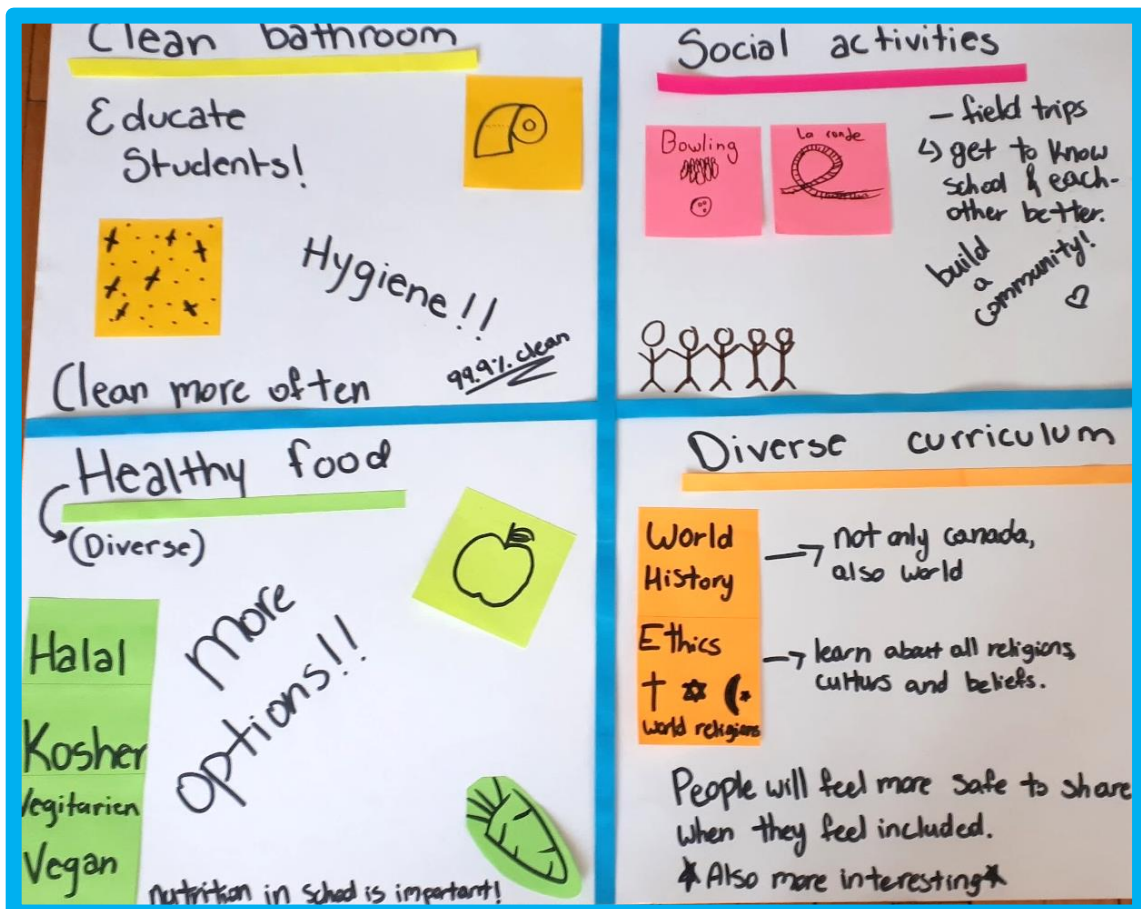 Clean bathroom
Educate
Students!
Hygiene!!
99.9% clean
Clean more often
Social activities
Bowling
La ronde
- field trips
↳ get to know
school & each-
other better.
build
a
community!
Healthy food
(Diverse)
Halal
Kosher
Vegitarien
Vegan
more
options!!
nutrition in school is important!
Diverse curriculum
World
History
→ not only canada,
also world
Ethics
world religions
→ learn about all religions,
culturs and beliefs.
People will feel more safe to share
when they feel included.
* Also more interesting *